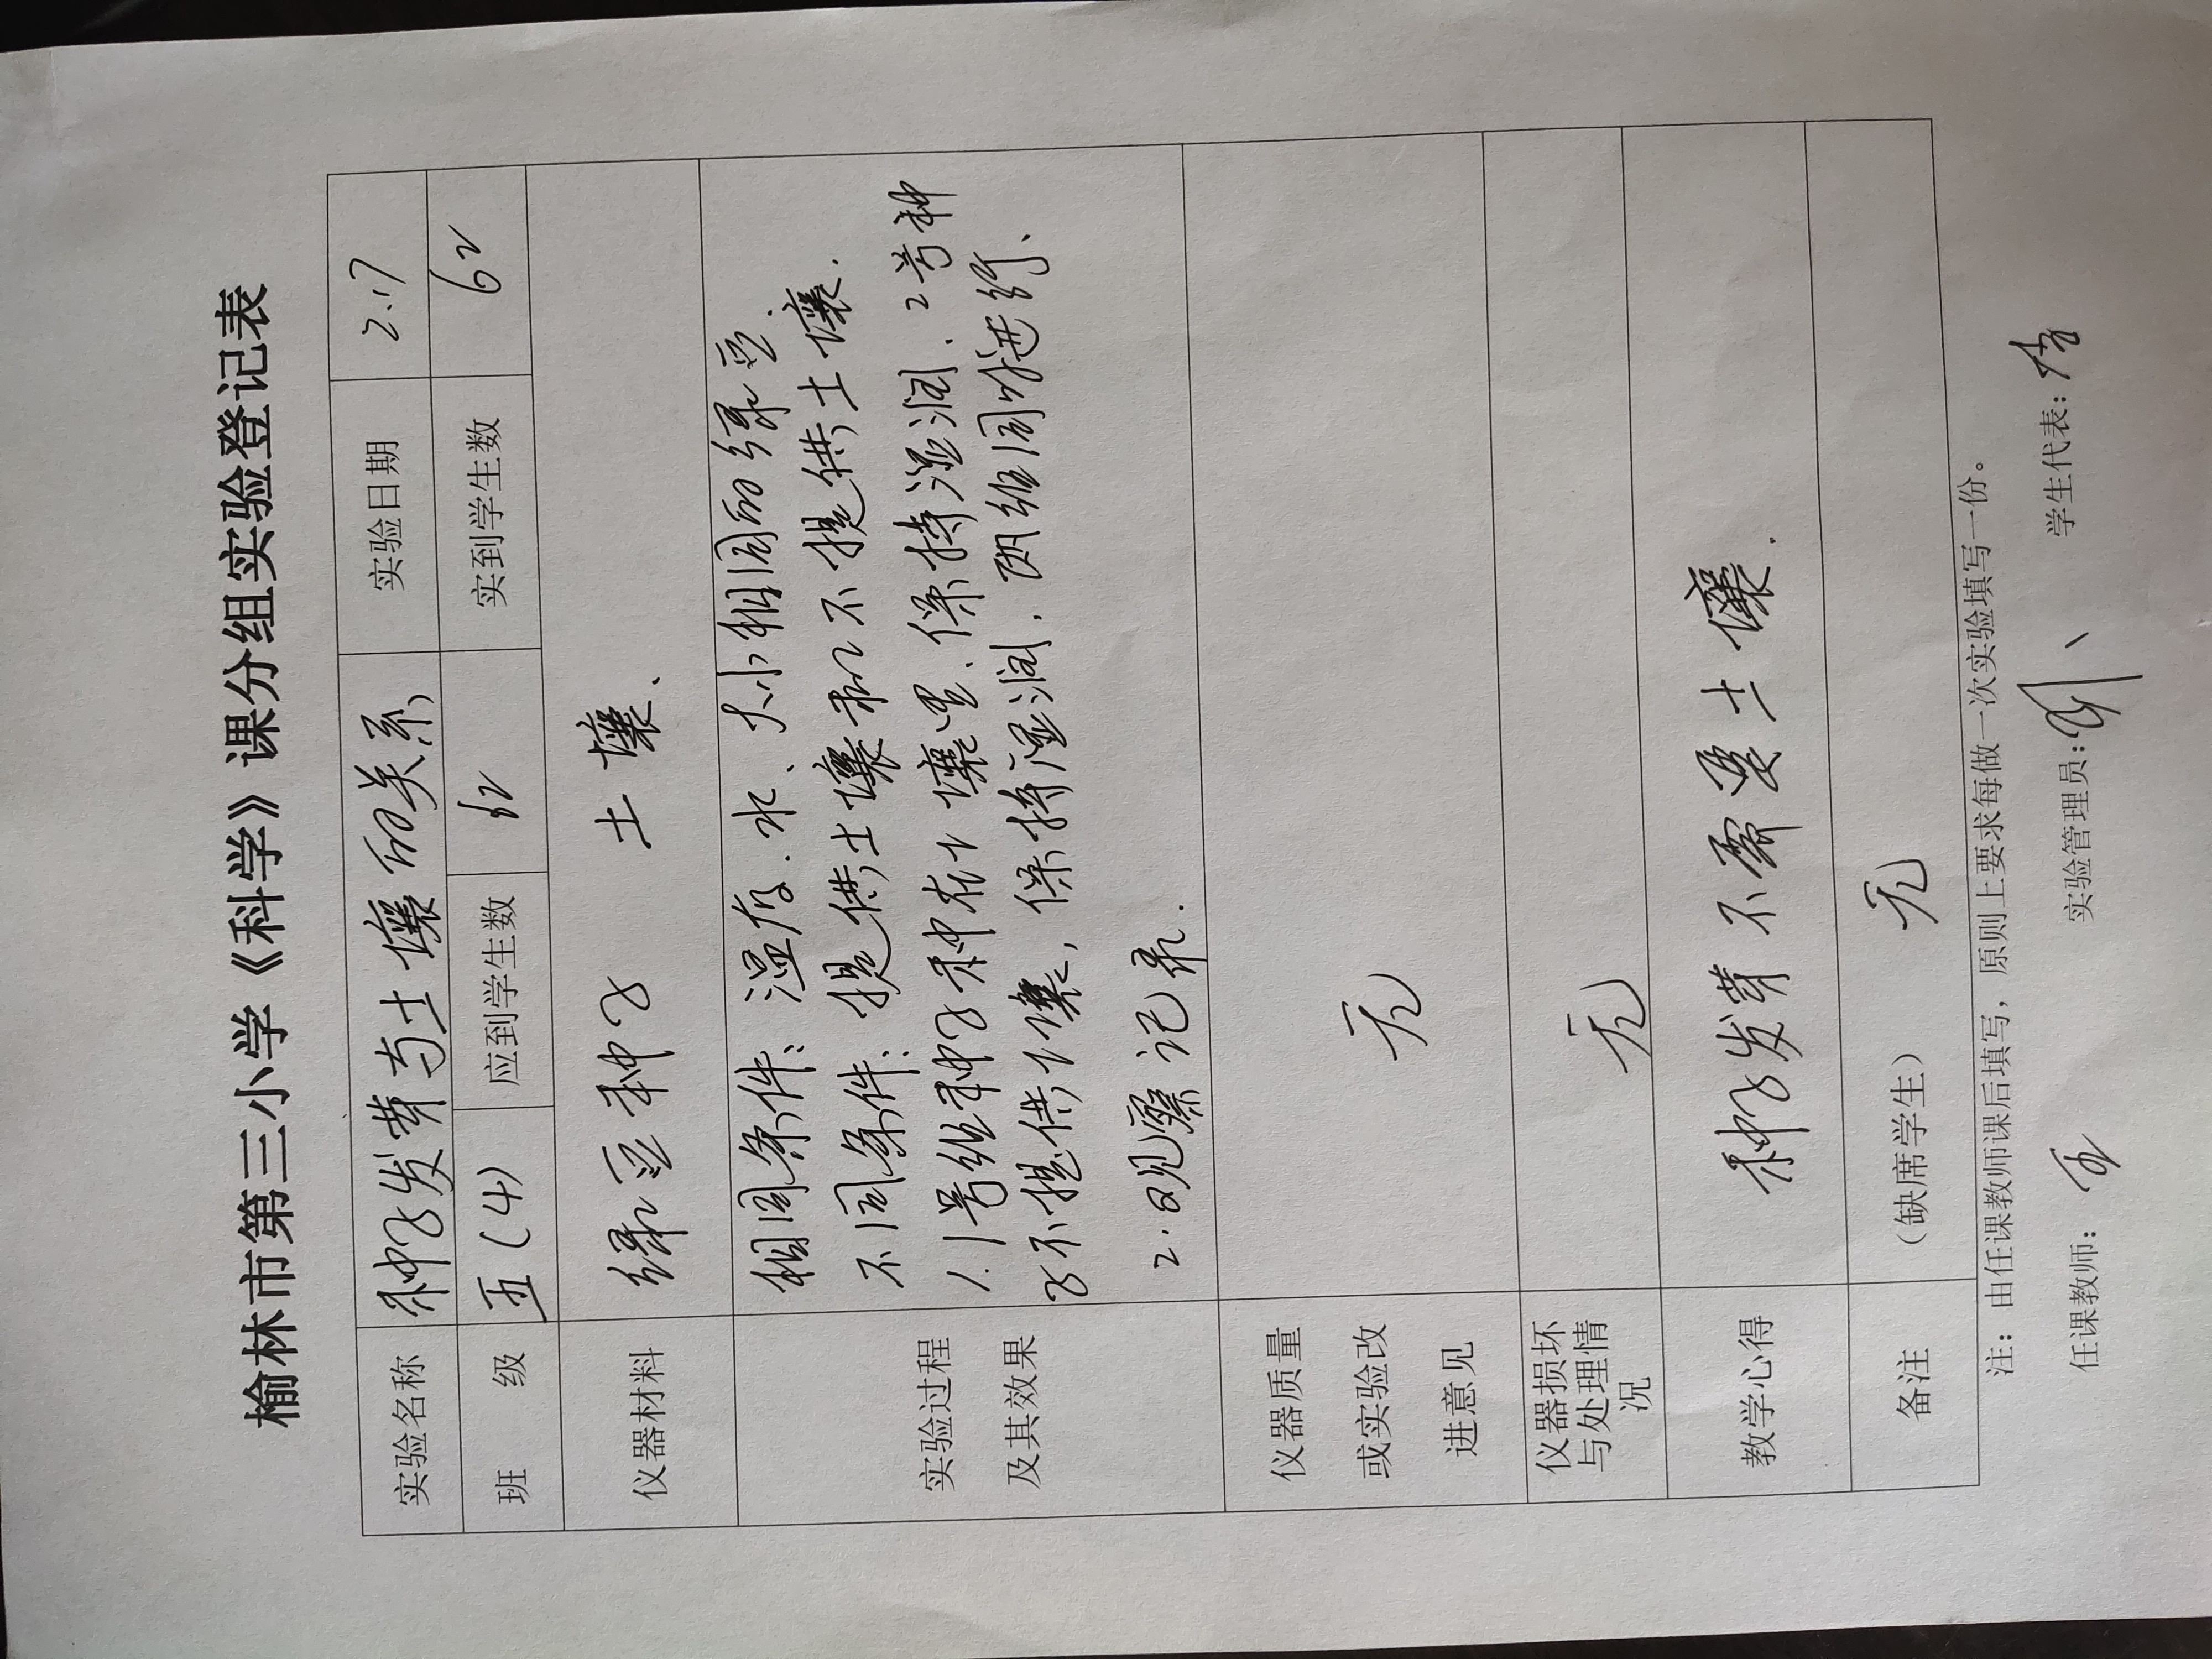 榆林市第三小学《科学》课分组实验登记表
实验名称 种子发芽与土壤的关系 实验日期 2.17
班 级 五(4) 应到学生数 62 实到学生数 62
仪器材料 绿豆种子 土壤、
实验过程
及其效果
相同条件：温度.水、大小相同的绿豆.
不同条件：提供土壤和不提供土壤.
1.1号组种子种在土壤里、保持湿润.2号种
子不提供土壤，保持湿润.两组同时进行、
2.观察记录.
仪器质量
或实验改
进意见
无
仪器损坏
与处理情
况
无
教学心得 种子发芽不需要土壤.
备注 （缺席学生） 无
注：由任课教师课后填写，原则上要求每做一次实验填写一份。
任课教师： 实验管理员： 学生代表：